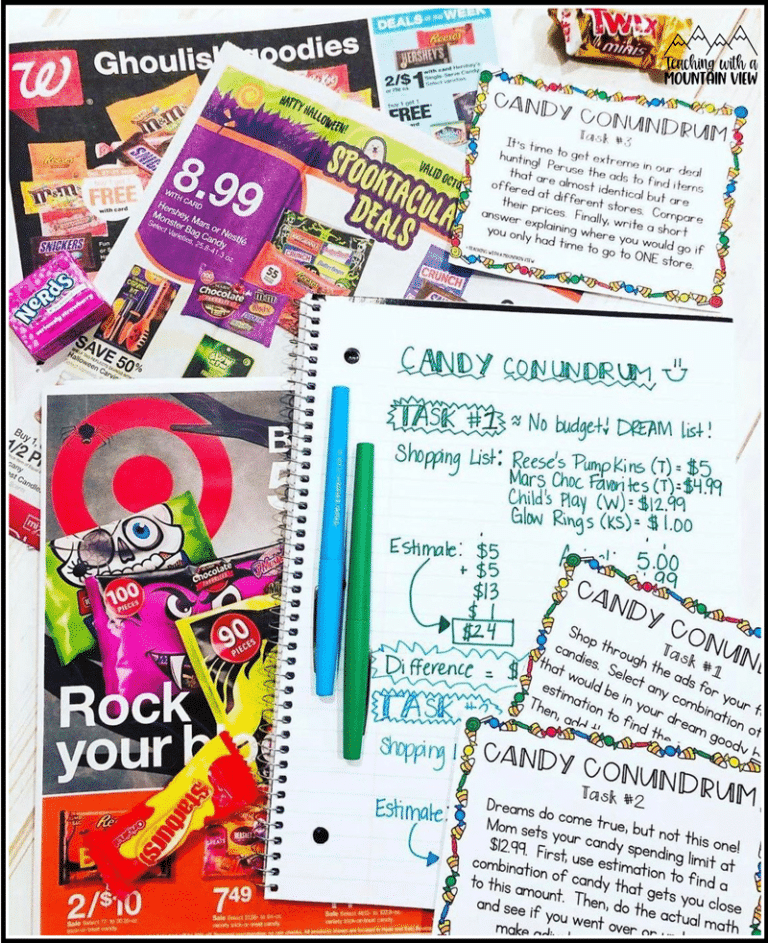 W
Ghoulish goodies
DEALS of the WEEK
Reese's
HERSHEY'S
2/$1 with card
FREE
TWIX
minis
Teaching with a
MOUNTAIN VIEW
CANDY CONUNDRUM
Task #3
It's time to get extreme in our deal
hunting! Peruse the ads to find items
that are almost identical but are
offered at different stores. Compare
their prices. Finally, write a short
answer explaining where you would go if
you only had time to go to ONE store.
HAPPY HALLOWEEN!
SPOOKTACULA
DEALS
VALID OCT
8.99
WITH CARD
Hershey, Mars or Nestlé
Monster Bag Candy
Select Varieties, 25.8-41.3 oz.
m&m's
FREE
with card
SNICKERS
Chocolate
55
CRUNCH
NERDS
seriously strawberry
SAVE 50%
Halloween Carvin
Buy 1,
1/2 P
CANDY CONUNDRUM
TASK #1 ≈ No budget! DREAM list!
Shopping List: Reese's Pumpkins (T) = $5
Mars Choc Favorites (T) = $4.99
Child's Play (W) = $12.99
Glow Rings (KS) = $1.00
Estimate: $5
+ $5
$13
$1
$24
5.00
.99
Difference = $
TASK
Shopping l
Estimate:
B
5
100
PIECES
Chocolate
90
PIECES
Rock
your bl
Starburst
2/$10
7 49
CANDY CONUN
Task #1
Shop through the ads for your f
candies. Select any combination of
that would be in your dream goody b
estimation to find the
Then, add
CANDY CONUNDRUM
Task #2
Dreams do come true, but not this one!
Mom sets your candy spending limit at
$12.99. First, use estimation to find a
combination of candy that gets you close
to this amount. Then, do the actual math
and see if you went over or
make adj